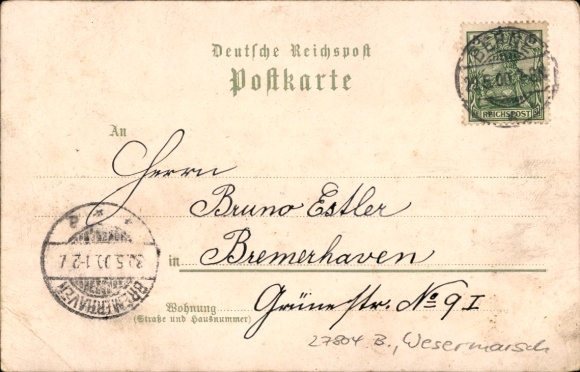 Deutsche Reichspost
Postkarte
BERNE
REICHSPOST
An
Herrn
Bruno Estler
in Bremerhaven
Wohnung Grünestr. No 9 I
(Straße und Hausnummer)
BREMERHAVEN
27804 B., Wesermarsch